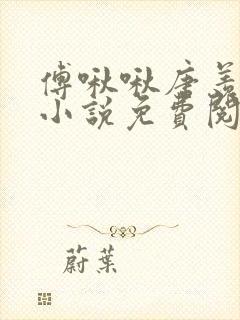 傅啾啾唐善
小說免費閱
蔚葉